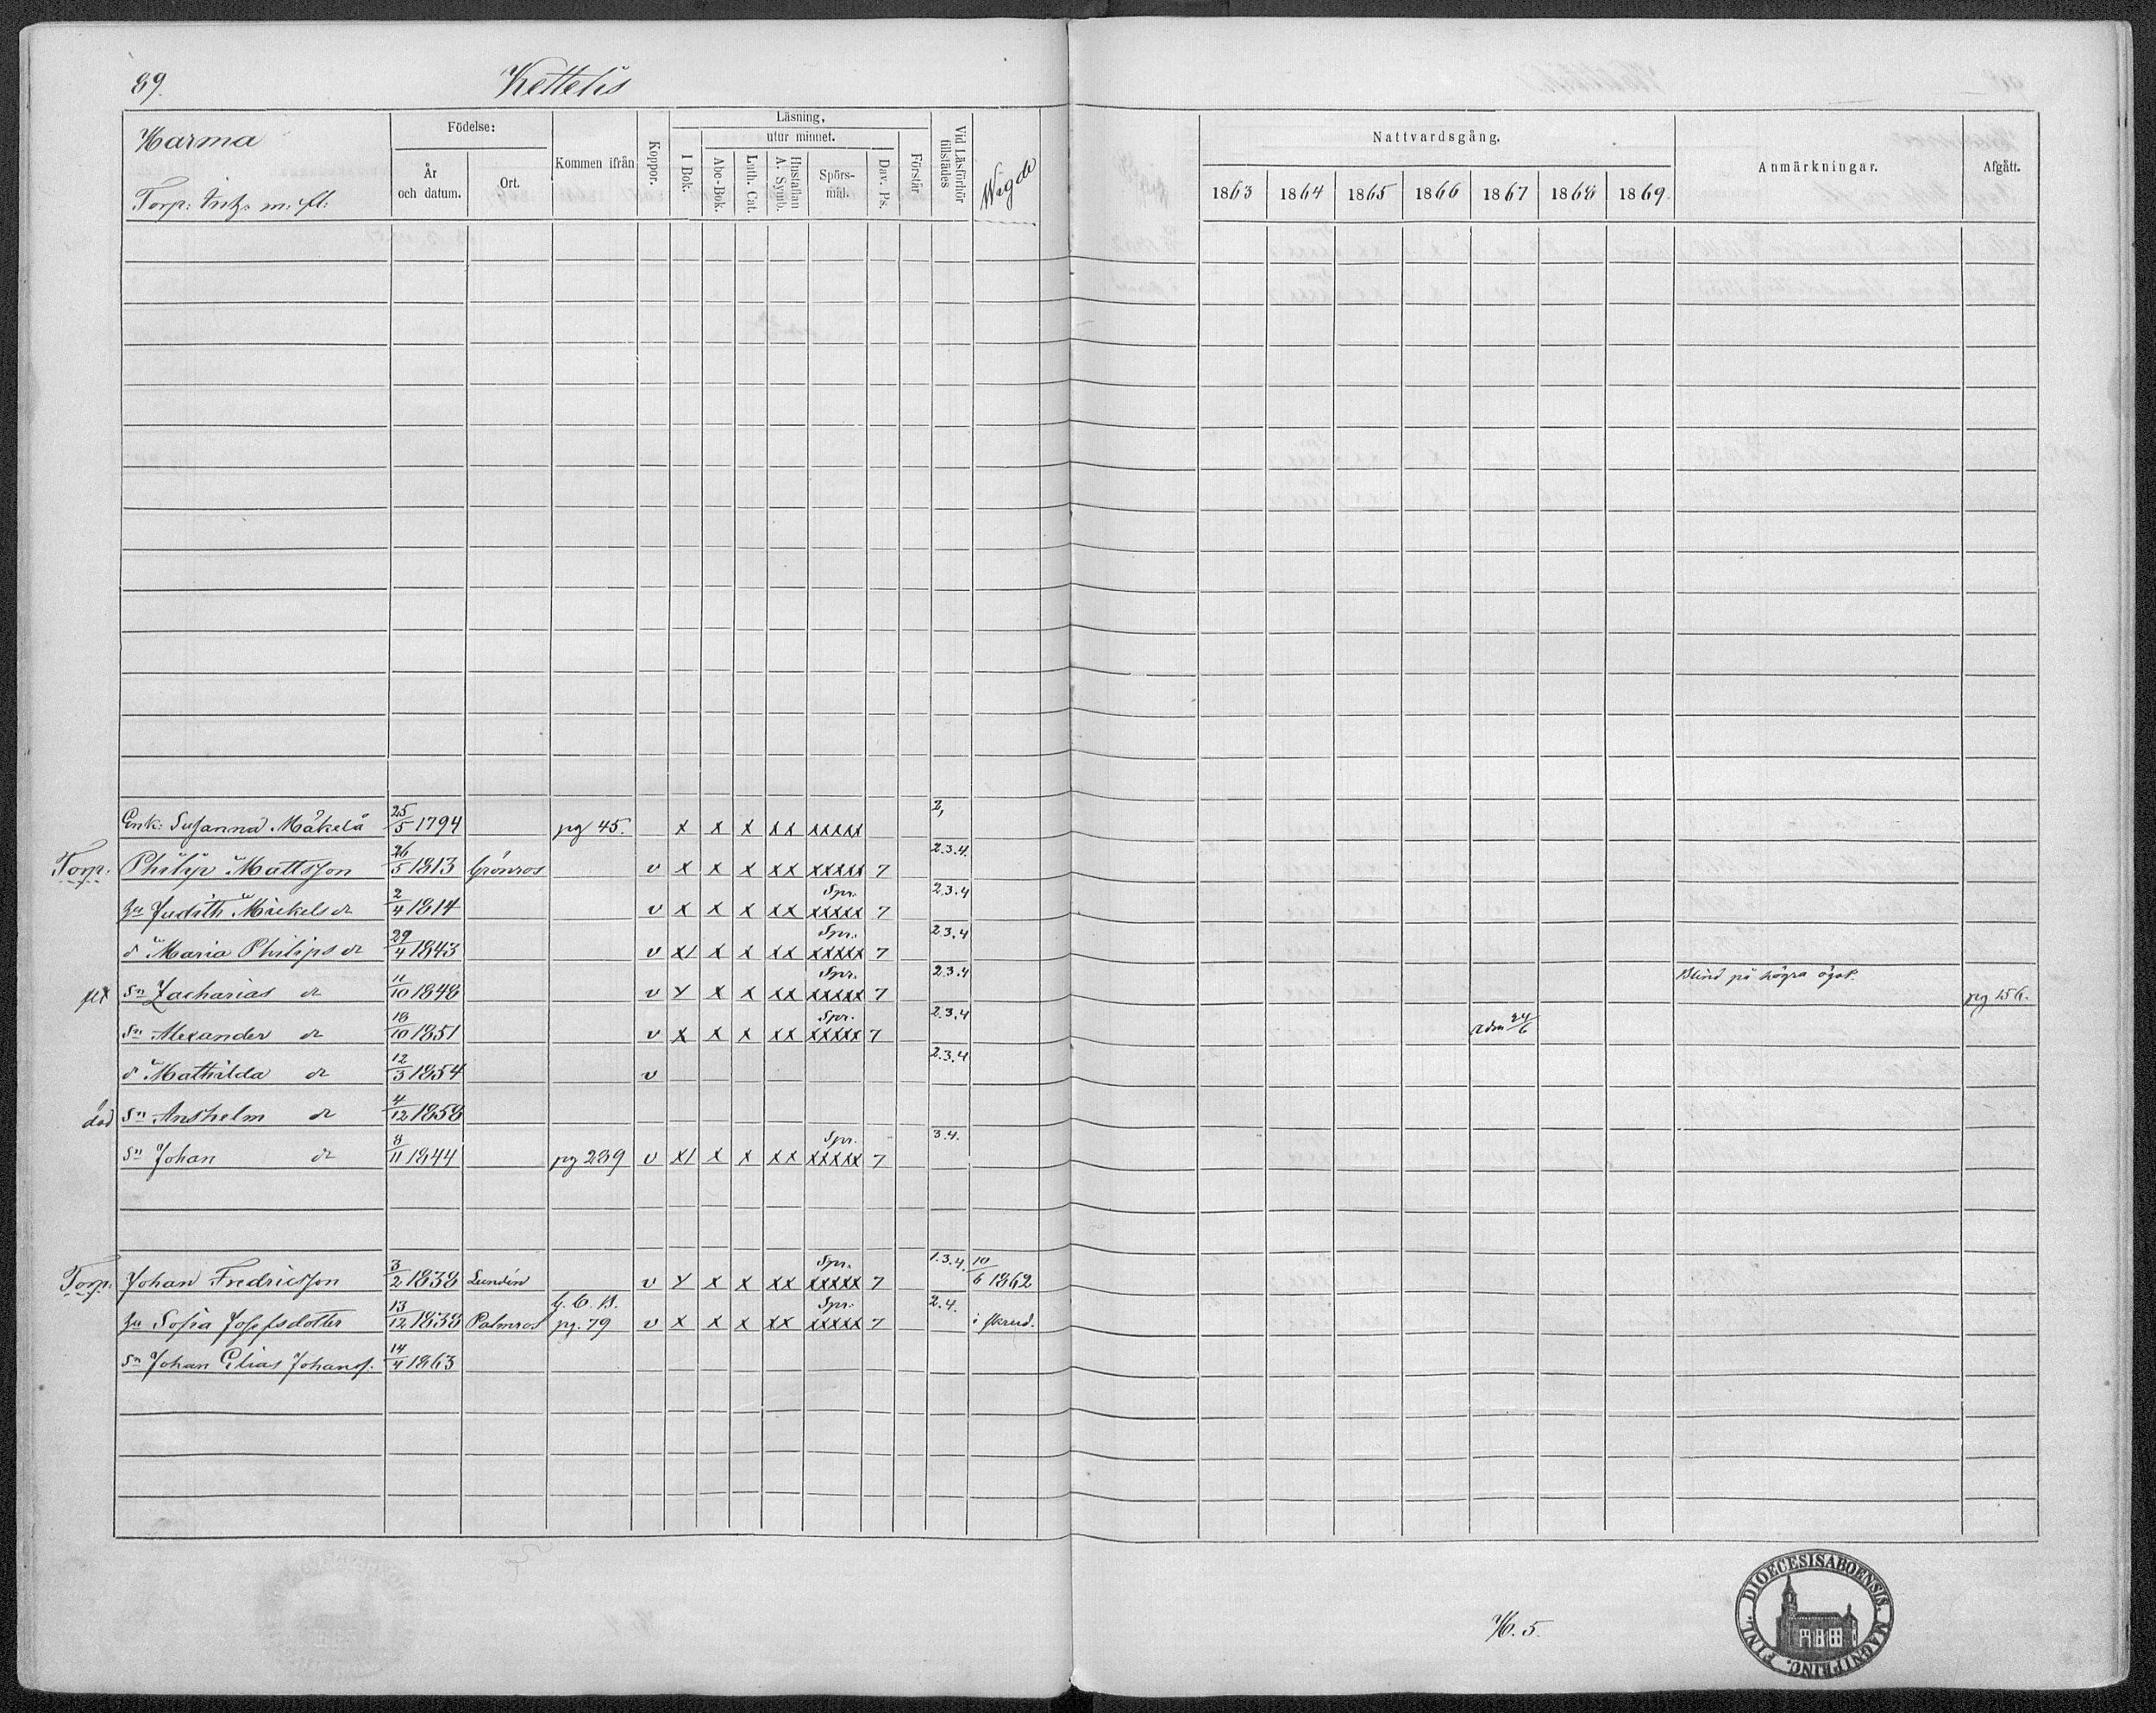 89.
Kettelis
Harma
Torp: Inh: m: fl:
Födelse:
År och datum.
Ort.
Kommen ifrån
Koppor.
Läsning,
I Bok.
utur minnet.
Abc-Bok.
Luth. Cat.
Hustaflan A. Symb.
Spörs-mål.
Dav. Ps.
Förstår
Vid Läsförhör tillstädes
Wigde
Nattvardsgång.
1863 1864 1865 1866 1867 1868 1869.
Anmärkningar.
Afgått.
Enk: Susanna Mäkelä 25/5 1794 pg 45. x x x xx xxxxx 2,
Torp. Philip Mattsson 26/5 1813 Grönros v x x x xx xxxxx 7 2.3.4.
hu Judith Mickels dr 2/4 1814 v x x x xx Spr. xxxxx 7 2.3.4
dr Maria Philips dr 29/4 1843 v x1 x x xx Spr. xxxxx 7 2.3.4
flt Sn Zacharias dr 11/10 1848 v x x x xx Spr. xxxxx 7 2.3.4 Blind på högra ögat. pg 156.
Sn Alexander dr 18/10 1851 v x x x xx Spr. xxxxx 7 2.3.4 adm 24/6
dr Mathilda dr 12/3 1854 v 2.3.4
död Sn Anshelm dr 4/12 1858
Sn Johan dr 8/11 1844 pg 289 v x1 x x xx Spr. xxxxx 7 3.4.
Torp. Johan Fredricsson 3/2 1838 Lundén v x x x xx Spr. xxxxx 7 1.3.4. 10/6 1862
hu Sofia Josefsdotter 13/12 1838 Palmros G. C. B. pg. 79 v x x x xx Spr. xxxxx 7 2.4. i skrud.
Sn Johan Elias Johans. 14/4 1863
H. 5.
DIOECESIS ABOENSIS. MAGNI PRINC. FINL.